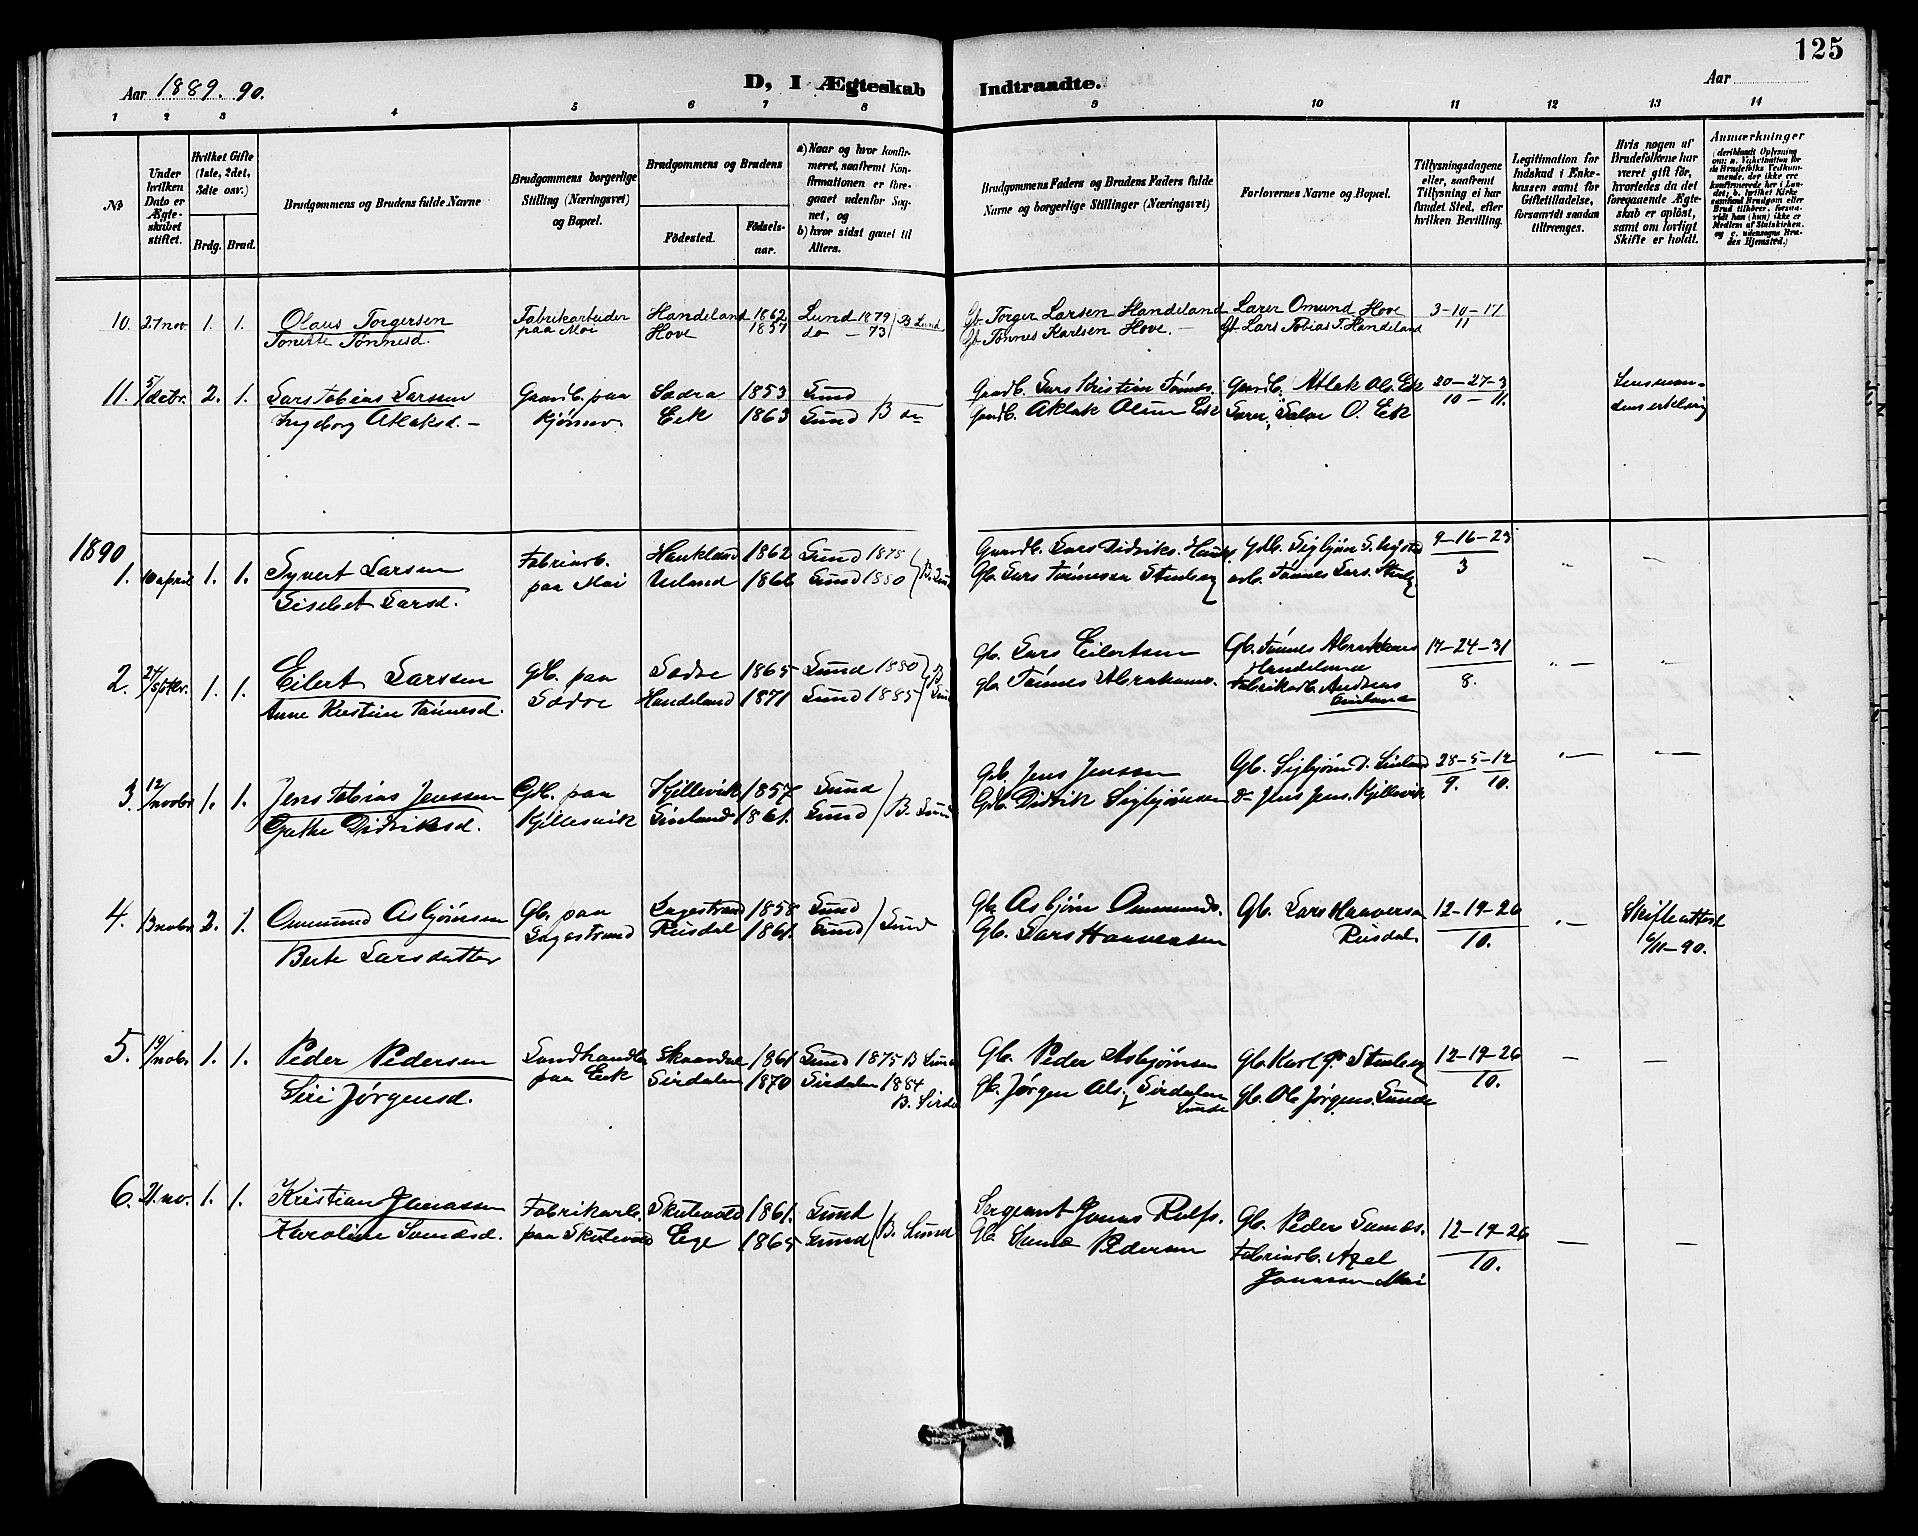 125
Aar 1889. 90.
D, I Ægteskab Indtraadte.
Aar
1 2 3 4 5 6 7 8 9 10 11 12 13 14
№
Under hvilken Dato er Ægteskabet stiftet.
Hvilket Gifte (1ste, 2det, 3die osv.)
Brdg. Brud.
Brudgommens og Brudens fulde Navne
Brudgommens borgerlige Stilling (Næringsvei) og Bopæl.
Brudgommens og Brudens
Födested.
Födselsaar.
a) Naar og hvor konfirmeret, saafremt Konfirmationen er foregaaet udenfor Sognet, og
b) hvor sidst gaaet til Alters.
Brudgommens Faders og Brudens Faders fulde Navne og borgerlige Stillinger (Næringsvei)
Forlovernes Navne og Bopæl.
Tillysningsdagene eller, saafremt Tillysning ei har fundet Sted, efter hvilken Bevilling.
Legitimation for Indskud i Enkekassen samt for Giftetilladelse, forsaavidt saadan tiltrænges.
Hvis nogen af Brudefolkene har været gift för, hvorledes da det foregaaende Ægteskab er oplöst, samt om lovligt Skifte er holdt.
Anmærkninger
10. 27 nov. 1. 1. Olaus Torgersen Fabrikarbeider Handeland 1862 Lund 1879 Gb. Torger Larsen Handeland Larer Omund Hove 3-10-17
Tonette Tönnesd. paa Moi Hove 1857 do - 73 B Lund Gb. Tönnes Karlsen Hove. Gb. Lars Tobias T. Handeland 11
11. 5/decbr. 2. 1. Lars Tobias Larsen Gaardb. paa Sadra 1853 Lund Gaardb. Lars Kristian Tönnes. Gaardb. Atlak Ols. Eik 20-27-3 Lensman-
Ingeborg Atlaksd. Eik 1863 Lund B do Gaardb. Atlak Olsen Eik Larer, Salve O. Eik 10-11. dens erklæring
1890
1. 10 april 1. 1. Syvert Larsen Fabrikarb. Haukland 1862 Lund 1878 Gaardb. Lars Didriks. Gb. Sigbjön S. 9-16-23
Lisebet Larsd. paa Moi Ueland 1866 Lund 1880 B. Lund Gb. Lars Tönnesen Stenberg Tönnes Lars. 3
2. 24/ 1. 1. Eilert Larssen Gb. paa Sadre 1865 Lund 1880 Gb. Lars Eilertsen Gb. Tönnes Abrahams 17-24-31
Anne Kirstine Tönnesd. Sadre Handeland 1871 Lund 1885 B Lund Gb. Tönnes Abrahams. Handeland 8.
Fabrikarb. Andreas
3. 12/novbr 1. 1. Jens Tobias Jenssen Gb. paa Kjellevik 1857 Lund Gdb. Jens Jenssen Gb. Sigbjörn D. 28-5-12
Didriksd. Kjellesvik 1861. Lund B. Lund Gdb. Didrik Sigbjörnsen do Jens Jens. Kjellevik 9. 10.
4. 13 novbr 2. 1. Ommund Asbjörnsen Gb. paa Lagestrand 1858 Lund Gb. Asbjörn Ommunds. Gb. Lars Haaversen 12-19-26 Skifteattest
Berte Larsdatter Lagestrand Rusdal 1861. Lund Lund Gb. Lars Haaversen Rusdal 10. 6/11-90.
5. 19/nobr. 1. 1. Peder Pedersen Landhandler Skaardal 1861. Lund 1875 B Lund Gb. Peder Asbjörnsen Gb. Karl Stenberg 12-19-26
Siri Jørgensd. paa Eik Sirdalen 1870 Sirdalen 1884 Gb. Jørgen Als. Sirdalen Gb. Ole Jørgens. Sunde 10.
B. Sirdal Sunde
6. 21. nov. 1. 1. Kristian Jonassen Fabrikarb. Skutevold 1861. Lund Sergeant Jonas Rolfs. Gb. Peder 12-19-26
Karoline paa Skutevold Ege 1865 Lund B. Lund Gb. Pedersen Fabrikarb. Axel 10.
Jonassen Moi